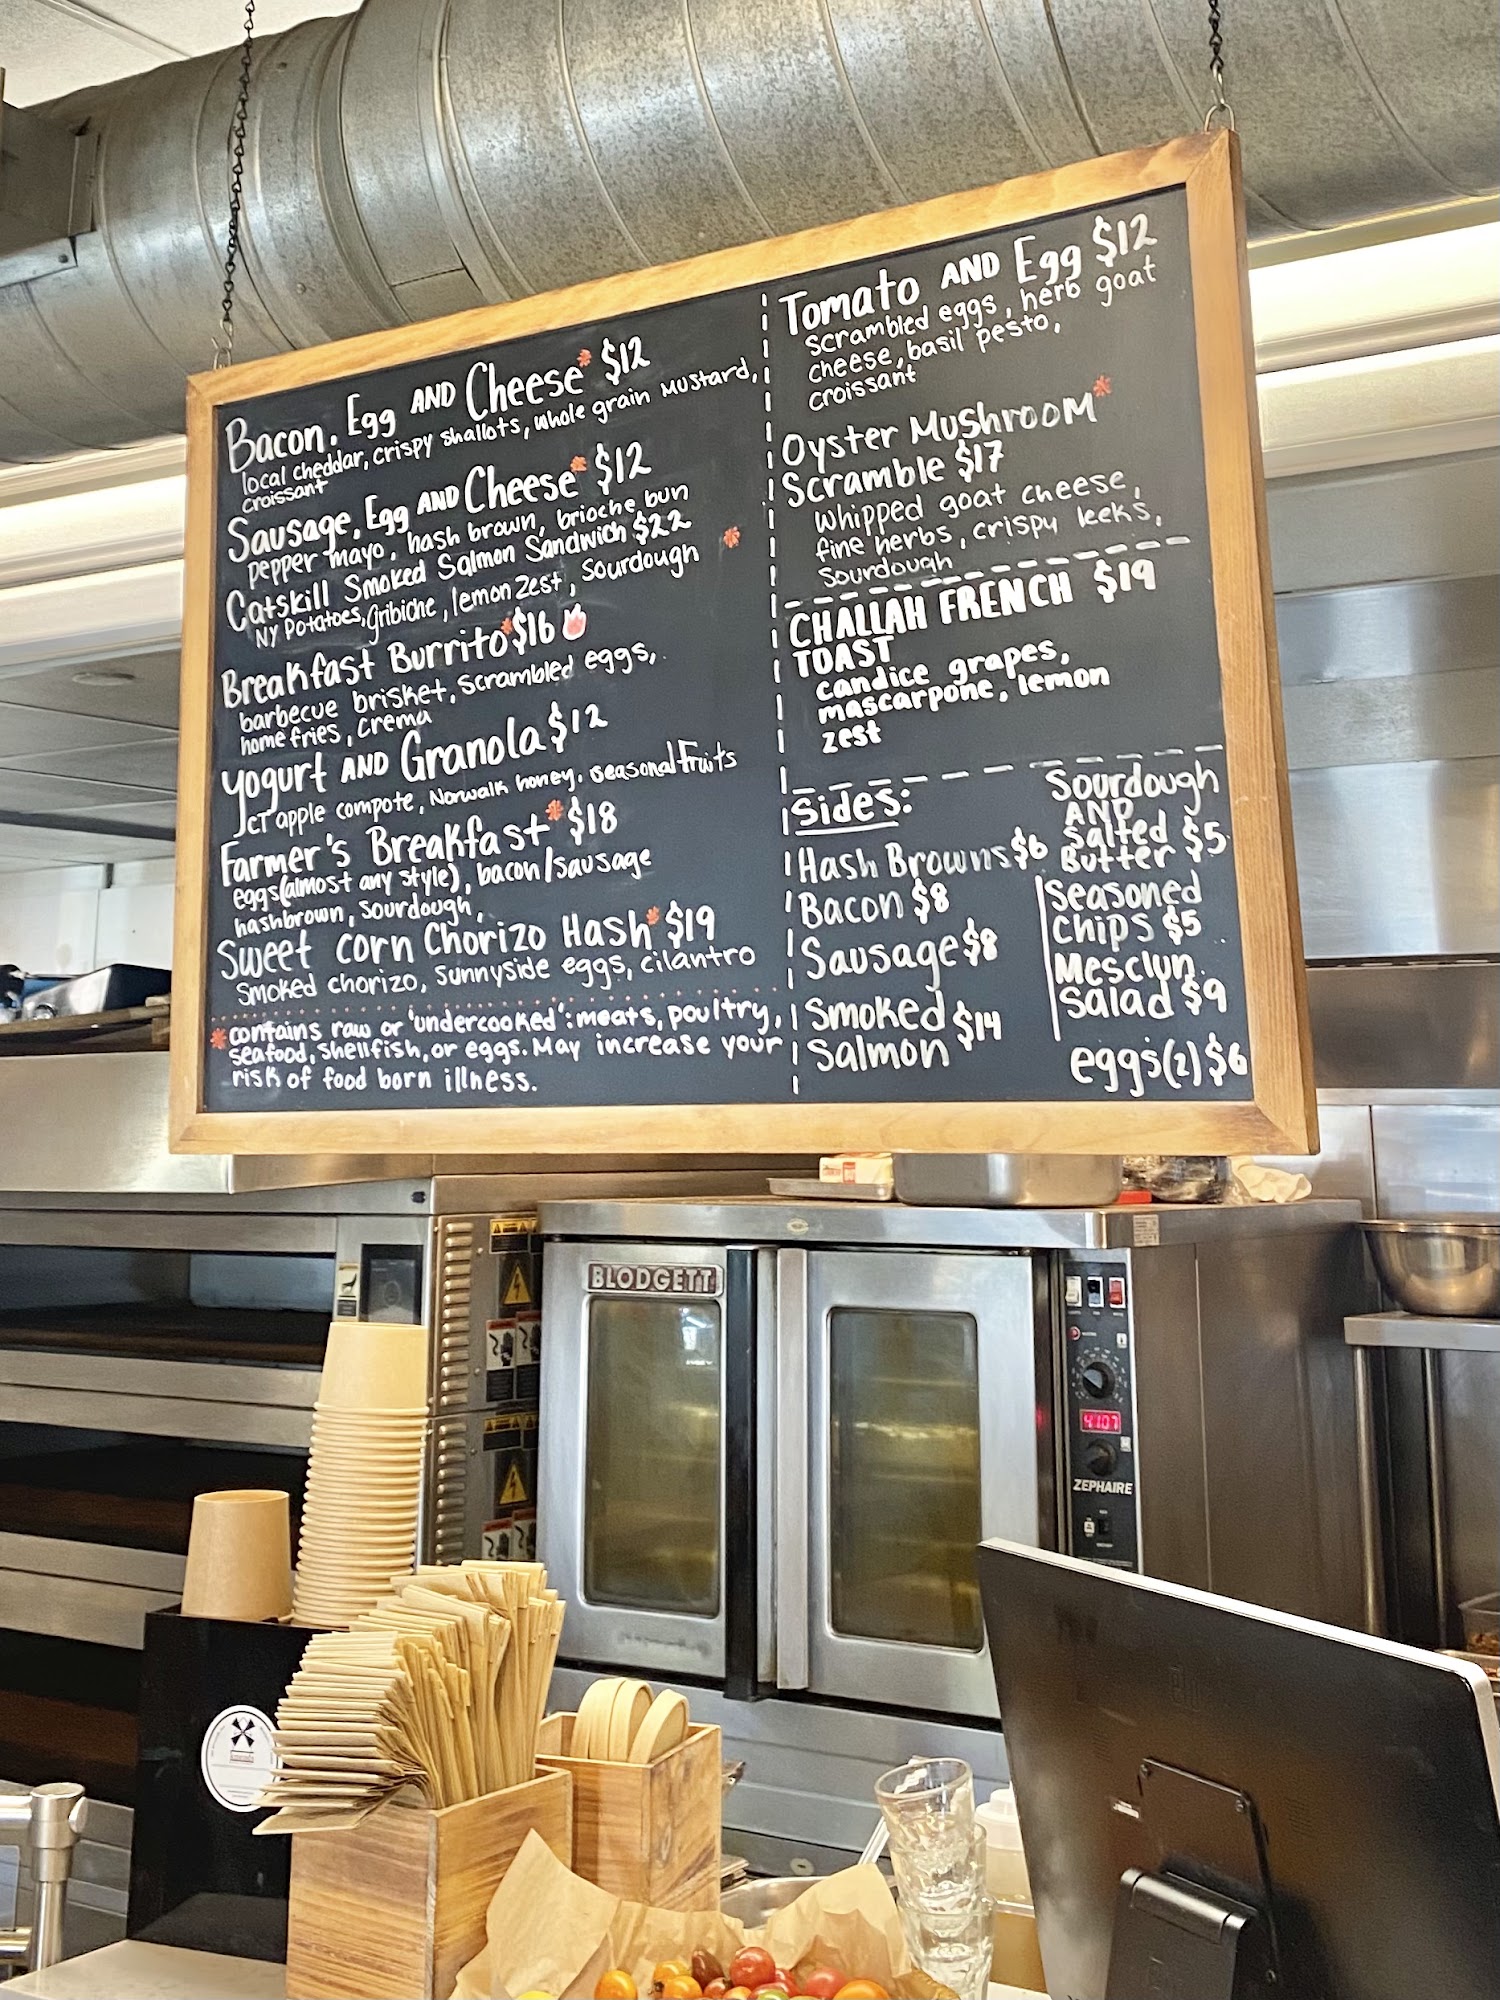 Bacon, Egg AND Cheese* $12
local cheddar, crispy shallots, whole grain mustard,
croissant
Sausage, Egg AND Cheese* $12
pepper mayo, hash brown, brioche bun
Catskill Smoked Salmon Sandwich $22 *
NY Potatoes, gribiche, lemon zest, sourdough
Breakfast Burrito* $16
barbecue brisket, scrambled eggs,
home fries, crema
Yogurt AND Granola $12
CT apple compote, Norwalk honey, seasonal fruits
Farmer's Breakfast* $18
eggs(almost any style), bacon/sausage
hashbrown, sourdough,
Sweet corn Chorizo Hash* $19
Smoked chorizo, sunnyside eggs, cilantro
*contains raw or 'undercooked': meats, poultry,
seafood, shellfish, or eggs. May increase your
risk of food born illness.
Tomato AND Egg $12
scrambled eggs, herb goat
cheese, basil pesto,
croissant
Oyster Mushroom*
Scramble $17
Whipped goat cheese,
fine herbs, crispy leeks,
Sourdough
CHALLAH FRENCH $19
TOAST
candice grapes,
mascarpone, lemon
zest
Sides:
Hash Browns $6
Bacon $8
Sausage $8
Smoked
Salmon $14
Sourdough
AND
Salted
Butter $5
Seasoned
Chips $5
Mesclun
Salad $9
eggs(2) $6
BLODGETT
4107
ZEPHAIRE